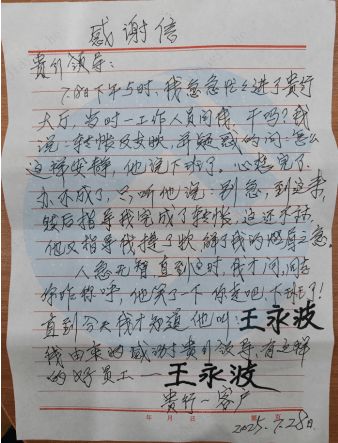 感谢信
贵行领导:
7.8日下午5时,我急急忙忙进了贵行
大厅,当时一工作人员问我,干吗?我
说:转帐及交映,并疑惑的问:怎么
这样安静,他说下班了。心想完了
办不成了,只听他说:别急,到这来,
然后指导我完成了转帐,这还不够,
他又指导我接了款,解了我的燃眉之急。
人急无智,直到这时,我才问,同志
你咋称呼,他笑了一下,你走吧,下班了!
直到今天我才知道他叫:王永波
我由衷的感谢贵行领导,有这样
的好员工—王永波
贵行一客户
年 月 日 第 页
2025.7.28日